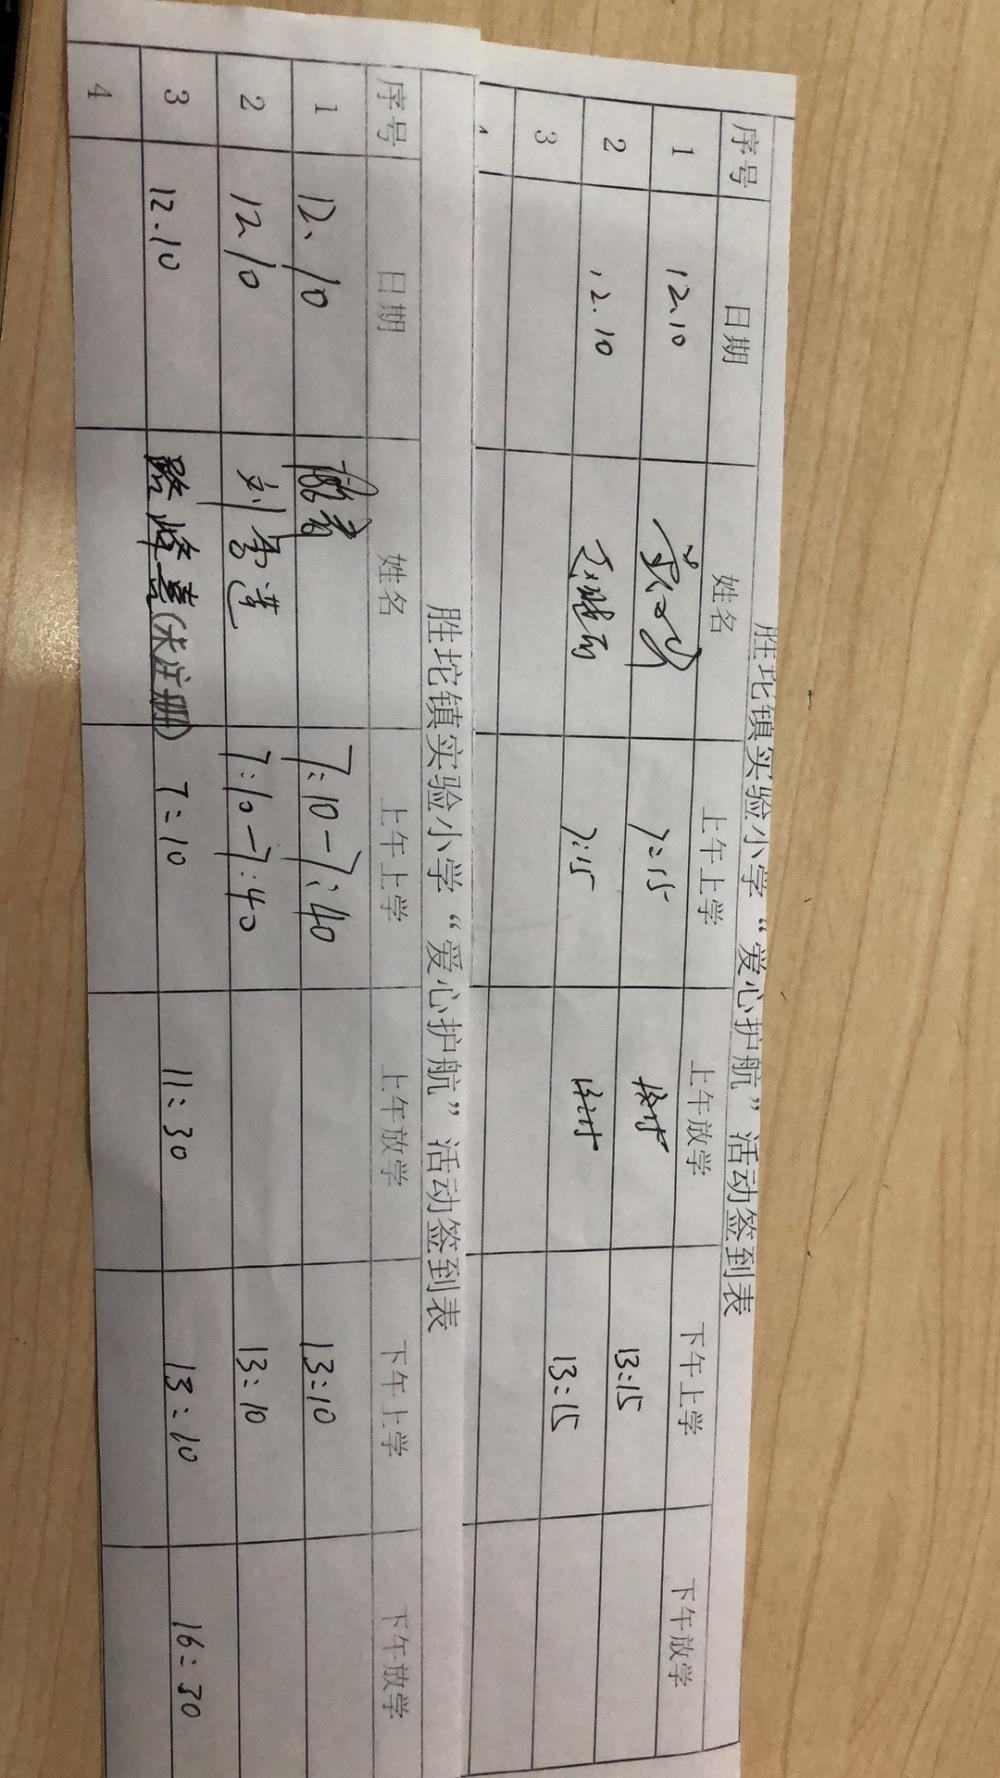 胜坨镇实验小学“爱心护航”活动签到表
序号 日期 姓名 上午上学 上午放学 下午上学 下午放学
1 12.10 7:15 13:15
2 12.10 7:15 13:15
3
胜坨镇实验小学“爱心护航”活动签到表
序号 日期 姓名 上午上学 上午放学 下午上学 下午放学
1 12.10 7:10-7:40 13:10
2 12.10 刘雪莲 7:10-7:40 13:10
3 12.10 路峰(未注册) 7:10 11:30 13:10 16:30
4